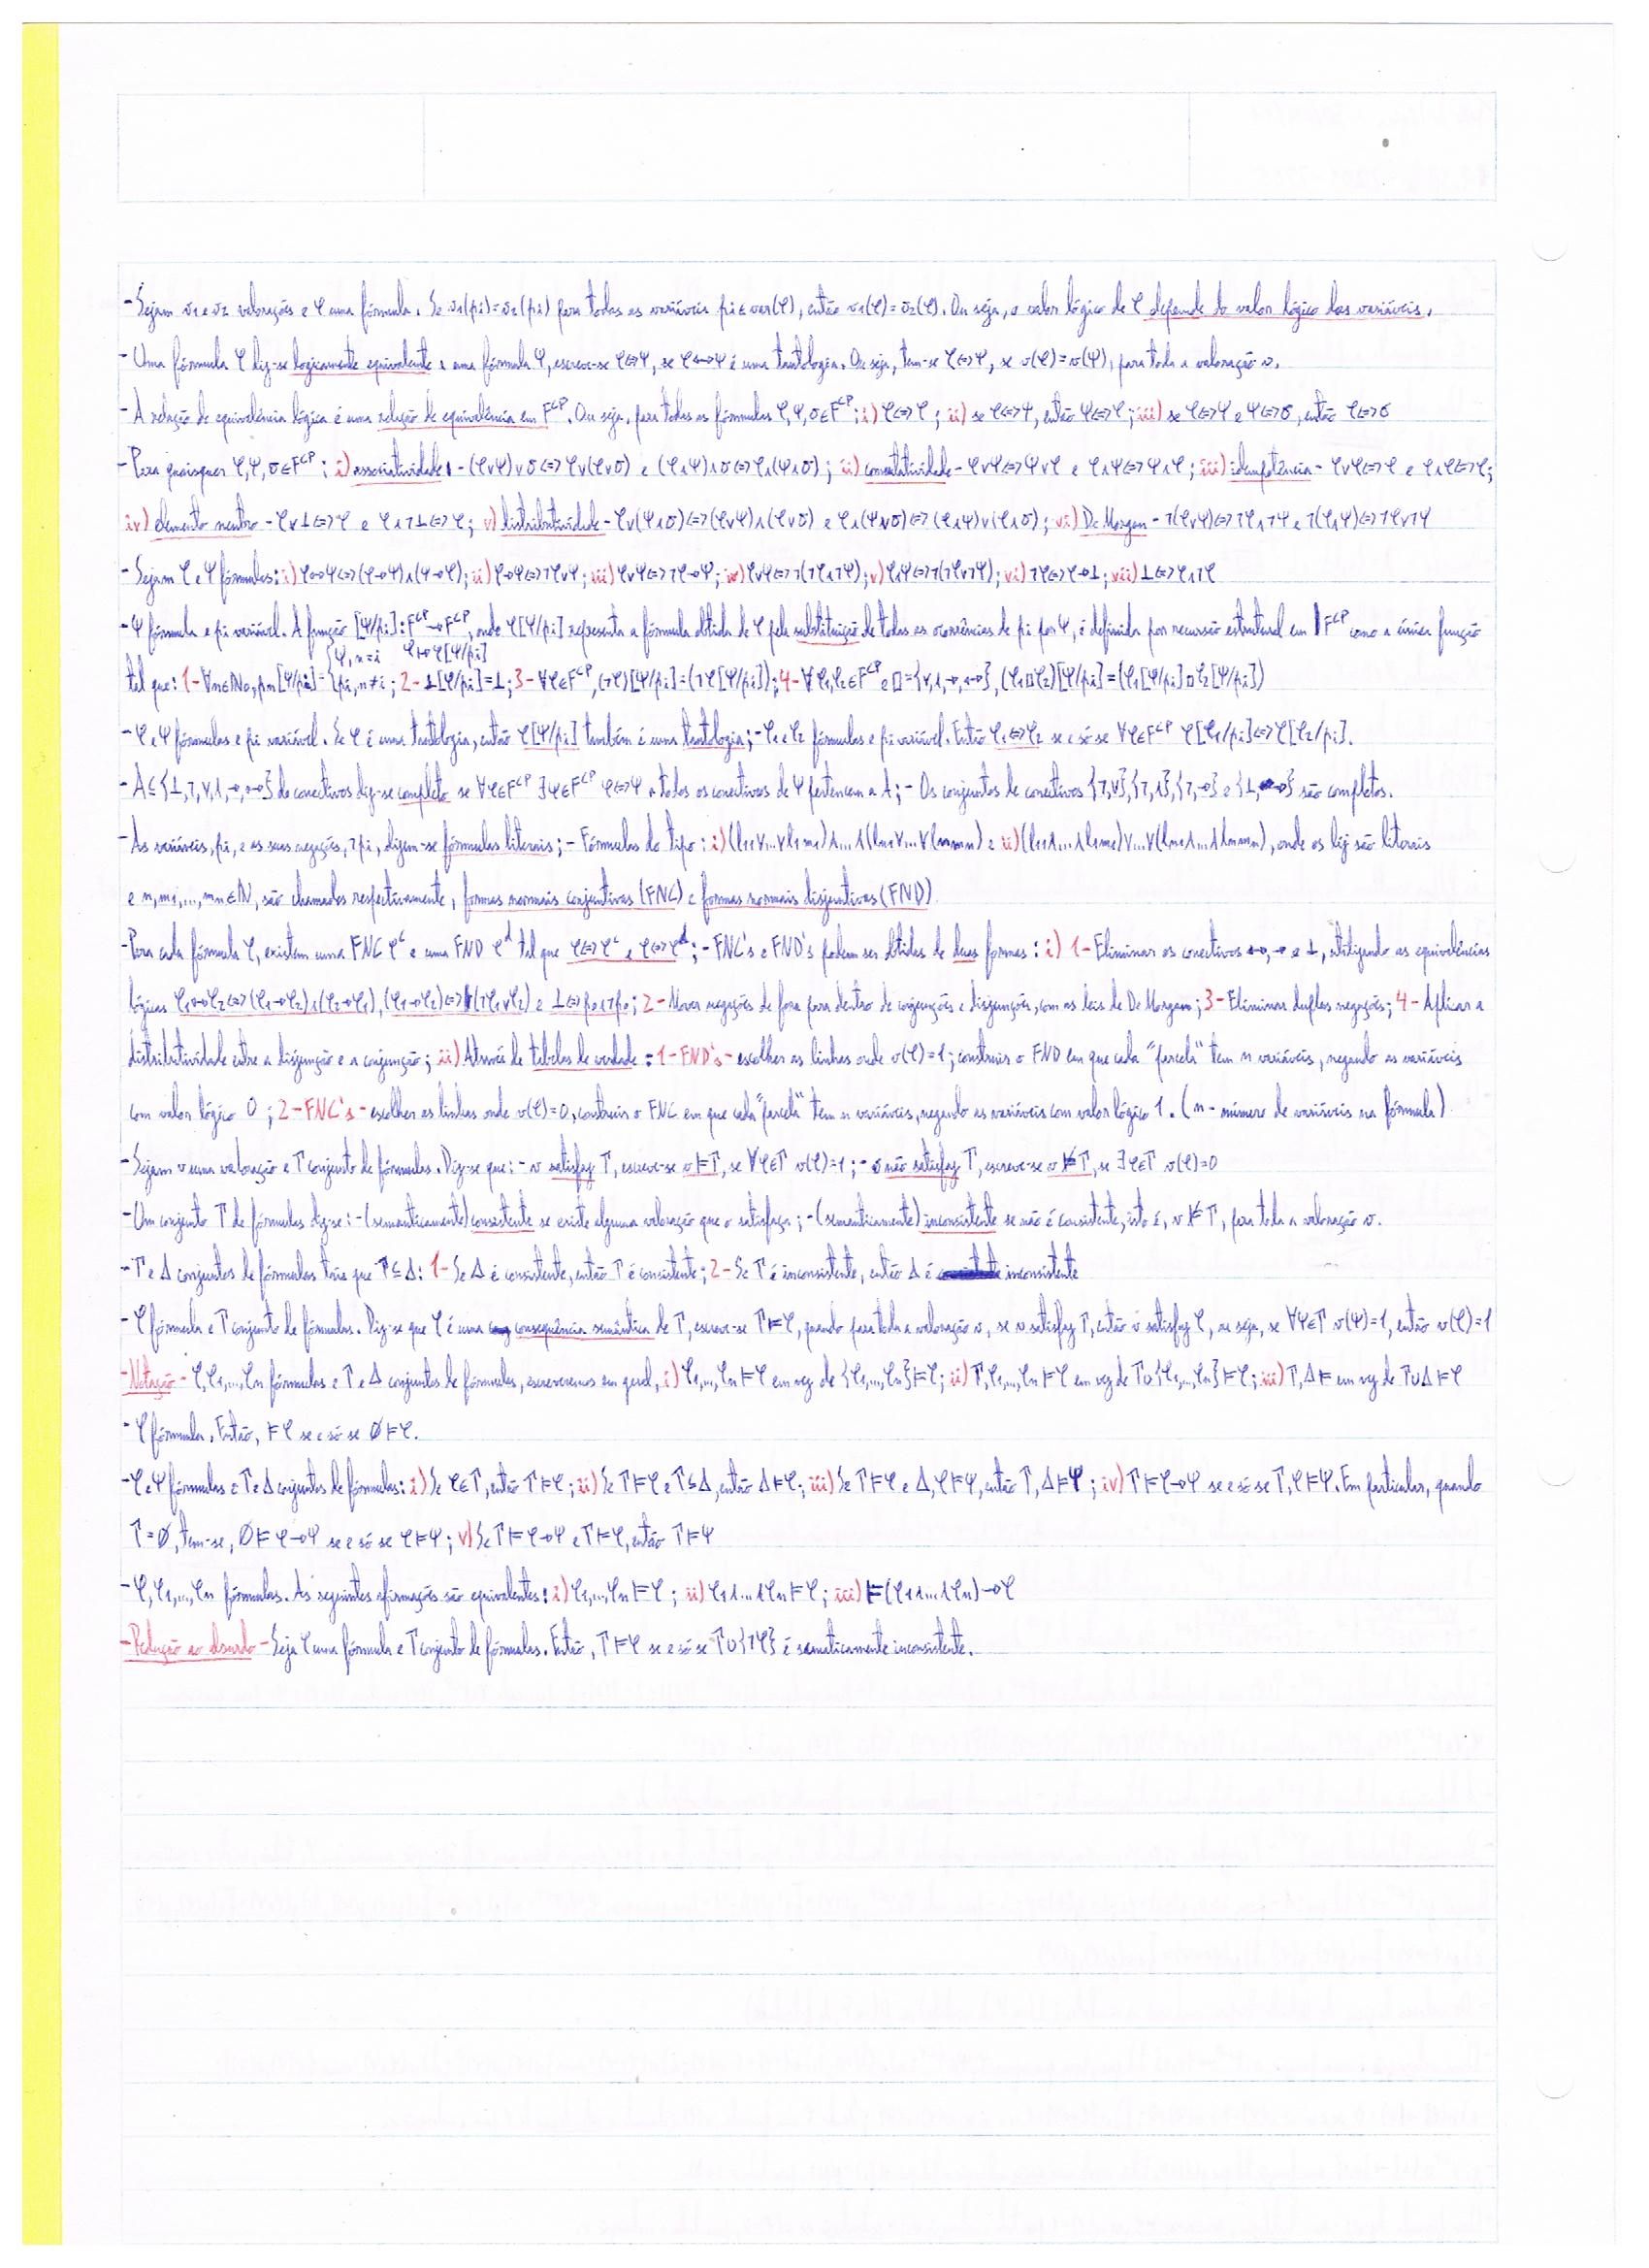 - Sejam v1 e v2 valorações e φ uma fórmula. Se v1(pi)=v2(pi) para todas as variáveis pi ∈ var(φ), então v1(φ)=v2(φ). Ou seja, o valor lógico de φ depende do valor lógico das variáveis.
- Uma fórmula φ diz-se logicamente equivalente a uma fórmula ψ, escreve-se φ⇔ψ, se φ↔ψ é uma tautologia. Ou seja, tem-se φ⇔ψ, se v(φ)=v(ψ), para toda a valoração v.
- A relação de equivalência lógica é uma relação de equivalência em F^CP. Ou seja, para todas as fórmulas φ,ψ,σ∈F^CP: i) φ⇔φ; ii) se φ⇔ψ, então ψ⇔φ; iii) se φ⇔ψ e ψ⇔σ, então φ⇔σ
- Para quaisquer φ,ψ,σ∈F^CP: i) associatividade - (φ∨ψ)∨σ⇔φ∨(ψ∨σ) e (φ∧ψ)∧σ⇔φ∧(ψ∧σ); ii) comutatividade - φ∨ψ⇔ψ∨φ e φ∧ψ⇔ψ∧φ; iii) idempotência - φ∨φ⇔φ e φ∧φ⇔φ;
iv) elemento neutro - φ∨⊥⇔φ e φ∧¬⊥⇔φ; v) distributividade - φ∨(ψ∧σ)⇔(φ∨ψ)∧(φ∨σ) e φ∧(ψ∨σ)⇔(φ∧ψ)∨(φ∧σ); vi) De Morgan - ¬(φ∨ψ)⇔¬φ∧¬ψ e ¬(φ∧ψ)⇔¬φ∨¬ψ
- Sejam φ e ψ fórmulas: i) φ↔ψ⇔(φ→ψ)∧(ψ→φ); ii) φ→ψ⇔¬φ∨ψ; iii) φ∨ψ⇔¬φ→ψ; iv) φ∨ψ⇔¬(¬φ∧¬ψ); v) φ∧ψ⇔¬(¬φ∨¬ψ); vi) ¬φ⇔φ→⊥; vii) ⊥⇔φ∧¬φ
- ψ fórmula e pi variável. A função [ψ/pi]: F^CP→F^CP, onde φ[ψ/pi] representa a fórmula obtida de φ pela substituição de todas as ocorrências de pi por ψ, é definida por recursão estrutural em F^CP como a única função
{ψ, n=i φ↦φ[ψ/pi]
tal que: 1- ∀n∈N0, pn[ψ/pi]={pi, n≠i; 2- ⊥[ψ/pi]=⊥; 3- ∀φ∈F^CP, (¬φ)[ψ/pi]=(¬φ[ψ/pi]); 4- ∀φ1,φ2∈F^CP e □={∨,∧,→,↔}, (φ1□φ2)[ψ/pi]=(φ1[ψ/pi]□φ2[ψ/pi])
- φ e ψ fórmulas e pi variável. Se φ é uma tautologia, então φ[ψ/pi] também é uma tautologia; - φ1 e φ2 fórmulas e pi variável. Então φ1⇔φ2 se e só se ∀φ∈F^CP φ[φ1/pi]⇔φ[φ2/pi].
- A⊆{⊥,¬,∨,∧,→,↔} de conectivos diz-se completo se ∀φ∈F^CP ∃ψ∈F^CP φ⇔ψ e todos os conectivos de ψ pertencem a A; - Os conjuntos de conectivos {¬,∨},{¬,∧},{¬,→} e {⊥,→} são completos.
- As variáveis, pi, e as suas negações, ¬pi, dizem-se fórmulas literais; - Fórmulas do tipo: i) (l11∨...∨l1m1)∧...∧(ln1∨...∨lnmn) e ii) (l11∧...∧l1m1)∨...∨(ln1∧...∧lnmn), onde os lij são literais
e n,m1,...,mn∈N, são chamadas respectivamente, formas normais conjuntivas (FNC) e formas normais disjuntivas (FND).
- Para cada fórmula φ, existem uma FNC φ^c e uma FND φ^d tal que φ⇔φ^c e φ⇔φ^d; - FNC's e FND's podem ser obtidas de duas formas: i) 1- Eliminar os conectivos ↔,→ e ⊥, utilizando as equivalências
lógicas φ1↔φ2⇔(φ1→φ2)∧(φ2→φ1), (φ1→φ2)⇔(¬φ1∨φ2) e ⊥⇔p0∧¬p0; 2- Mover negações de fora para dentro de conjunções e disjunções, com as leis de De Morgan; 3- Eliminar duplas negações; 4- Aplicar a
distributividade entre a disjunção e a conjunção; ii) Através de tabelas de verdade: 1- FND's - escolher as linhas onde v(φ)=1; construir o FND em que cada "parcela" tem n variáveis, negando as variáveis
com valor lógico 0; 2- FNC's - escolher as linhas onde v(φ)=0, construir o FNC em que cada "parcela" tem n variáveis, negando as variáveis com valor lógico 1. (n - número de variáveis na fórmula)
- Sejam v uma valoração e Γ conjunto de fórmulas. Diz-se que: - v satisfaz Γ, escreve-se v⊨Γ, se ∀φ∈Γ v(φ)=1; - v não satisfaz Γ, escreve-se v⊭Γ, se ∃φ∈Γ v(φ)=0
- Um conjunto Γ de fórmulas diz-se: - (semanticamente) consistente se existe alguma valoração que o satisfaça; - (semanticamente) inconsistente se não é consistente, isto é, v⊭Γ, para toda a valoração v.
- Γ e Δ conjuntos de fórmulas tais que Γ⊆Δ: 1- Se Δ é consistente, então Γ é consistente; 2- Se Γ é inconsistente, então Δ é inconsistente
- φ fórmula e Γ conjunto de fórmulas. Diz-se que φ é uma consequência semântica de Γ, escreve-se Γ⊨φ, quando para toda a valoração v, se v satisfaz Γ, então v satisfaz φ, ou seja, se ∀ψ∈Γ v(ψ)=1, então v(φ)=1
- Notação - φ,φ1,...,φn fórmulas e Γ e Δ conjuntos de fórmulas, escreveremos em geral, i) φ1,...,φn⊨φ em vez de {φ1,...,φn}⊨φ; ii) Γ,φ1,...,φn⊨φ em vez de Γ∪{φ1,...,φn}⊨φ; iii) Γ,Δ⊨ em vez de Γ∪Δ⊨φ
- φ fórmula. Então, ⊨φ se e só se ∅⊨φ.
- φ e ψ fórmulas e Γ e Δ conjuntos de fórmulas: i) Se φ∈Γ, então Γ⊨φ; ii) Se Γ⊨φ e Γ⊆Δ, então Δ⊨φ; iii) Se Γ⊨φ e Δ,φ⊨ψ, então Γ,Δ⊨ψ; iv) Γ⊨φ→ψ se e só se Γ,φ⊨ψ. Em particular, quando
Γ=∅, tem-se, ∅⊨φ→ψ se e só se φ⊨ψ; v) Se Γ⊨φ→ψ e Γ⊨φ, então Γ⊨ψ
- φ,φ1,...,φn fórmulas. As seguintes afirmações são equivalentes: i) φ1,...,φn⊨φ; ii) φ1∧...∧φn⊨φ; iii) ⊨(φ1∧...∧φn)→φ
- Redução ao absurdo - Seja φ uma fórmula e Γ conjunto de fórmulas. Então, Γ⊨φ se e só se Γ∪{¬φ} é semanticamente inconsistente.